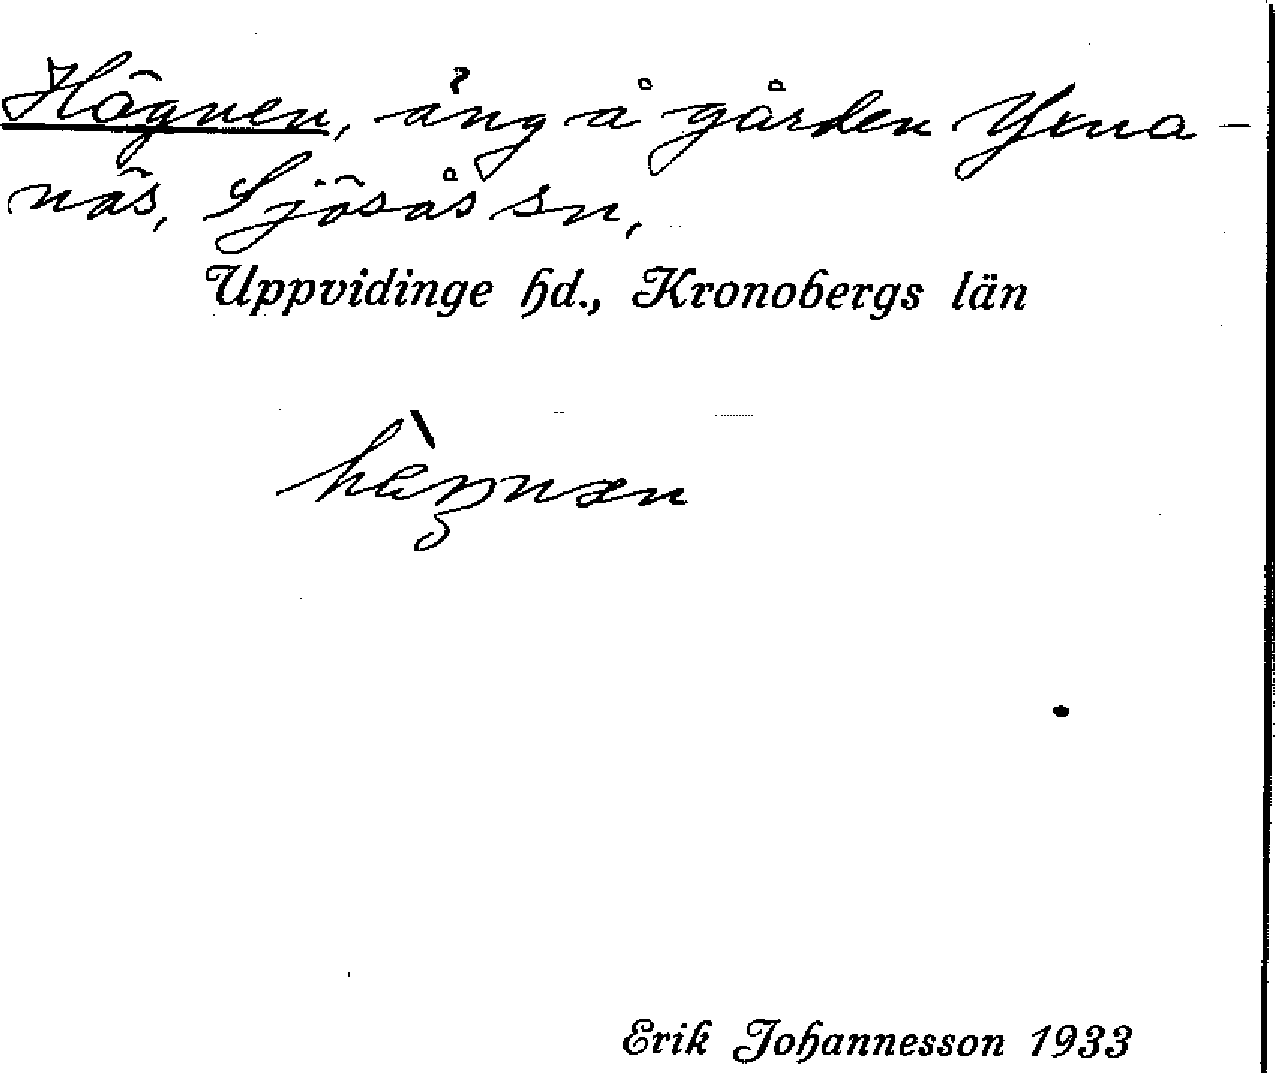 Hägnen, äng å gården Yxna-
näs, Sjösås sn,
Uppvidinge hd., Kronobergs län
Erik Johannesson 1933